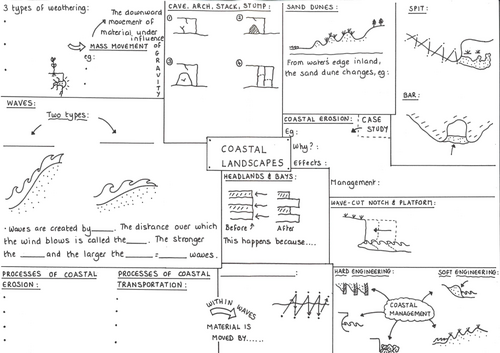 3 types of weathering:
The downward
movement of
material under
influence
OF
GRAVITY
MASS MOVEMENT
eg:
CAVE, ARCH, STACK, STUMP:
①
②
③
④
SAND DUNES:
From water's edge inland,
the sand dune changes, eg:
SPIT:
BAR:
WAVES:
Two types:
• Waves are created by____. The distance over which
the wind blows is called the____. The stronger
the ____ and the larger the ____ = ____ waves.
COASTAL EROSION:
CASE
STUDY
Eg:
Why?:
Effects:
Management:
COASTAL
LANDSCAPES
HEADLANDS & BAYS:
Before
After
This happens because....
WAVE-CUT NOTCH & PLATFORM:
PROCESSES OF COASTAL
EROSION:
PROCESSES OF COASTAL
TRANSPORTATION:
WITHIN
WAVES
MATERIAL IS
MOVED BY......
____________:
HARD ENGINEERING:
SOFT ENGINEERING:
COASTAL
MANAGEMENT